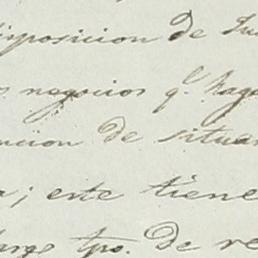 disposicion de Su
s negocios q.e haga
ncion de situa
a; este tiene
largo tpo. de re